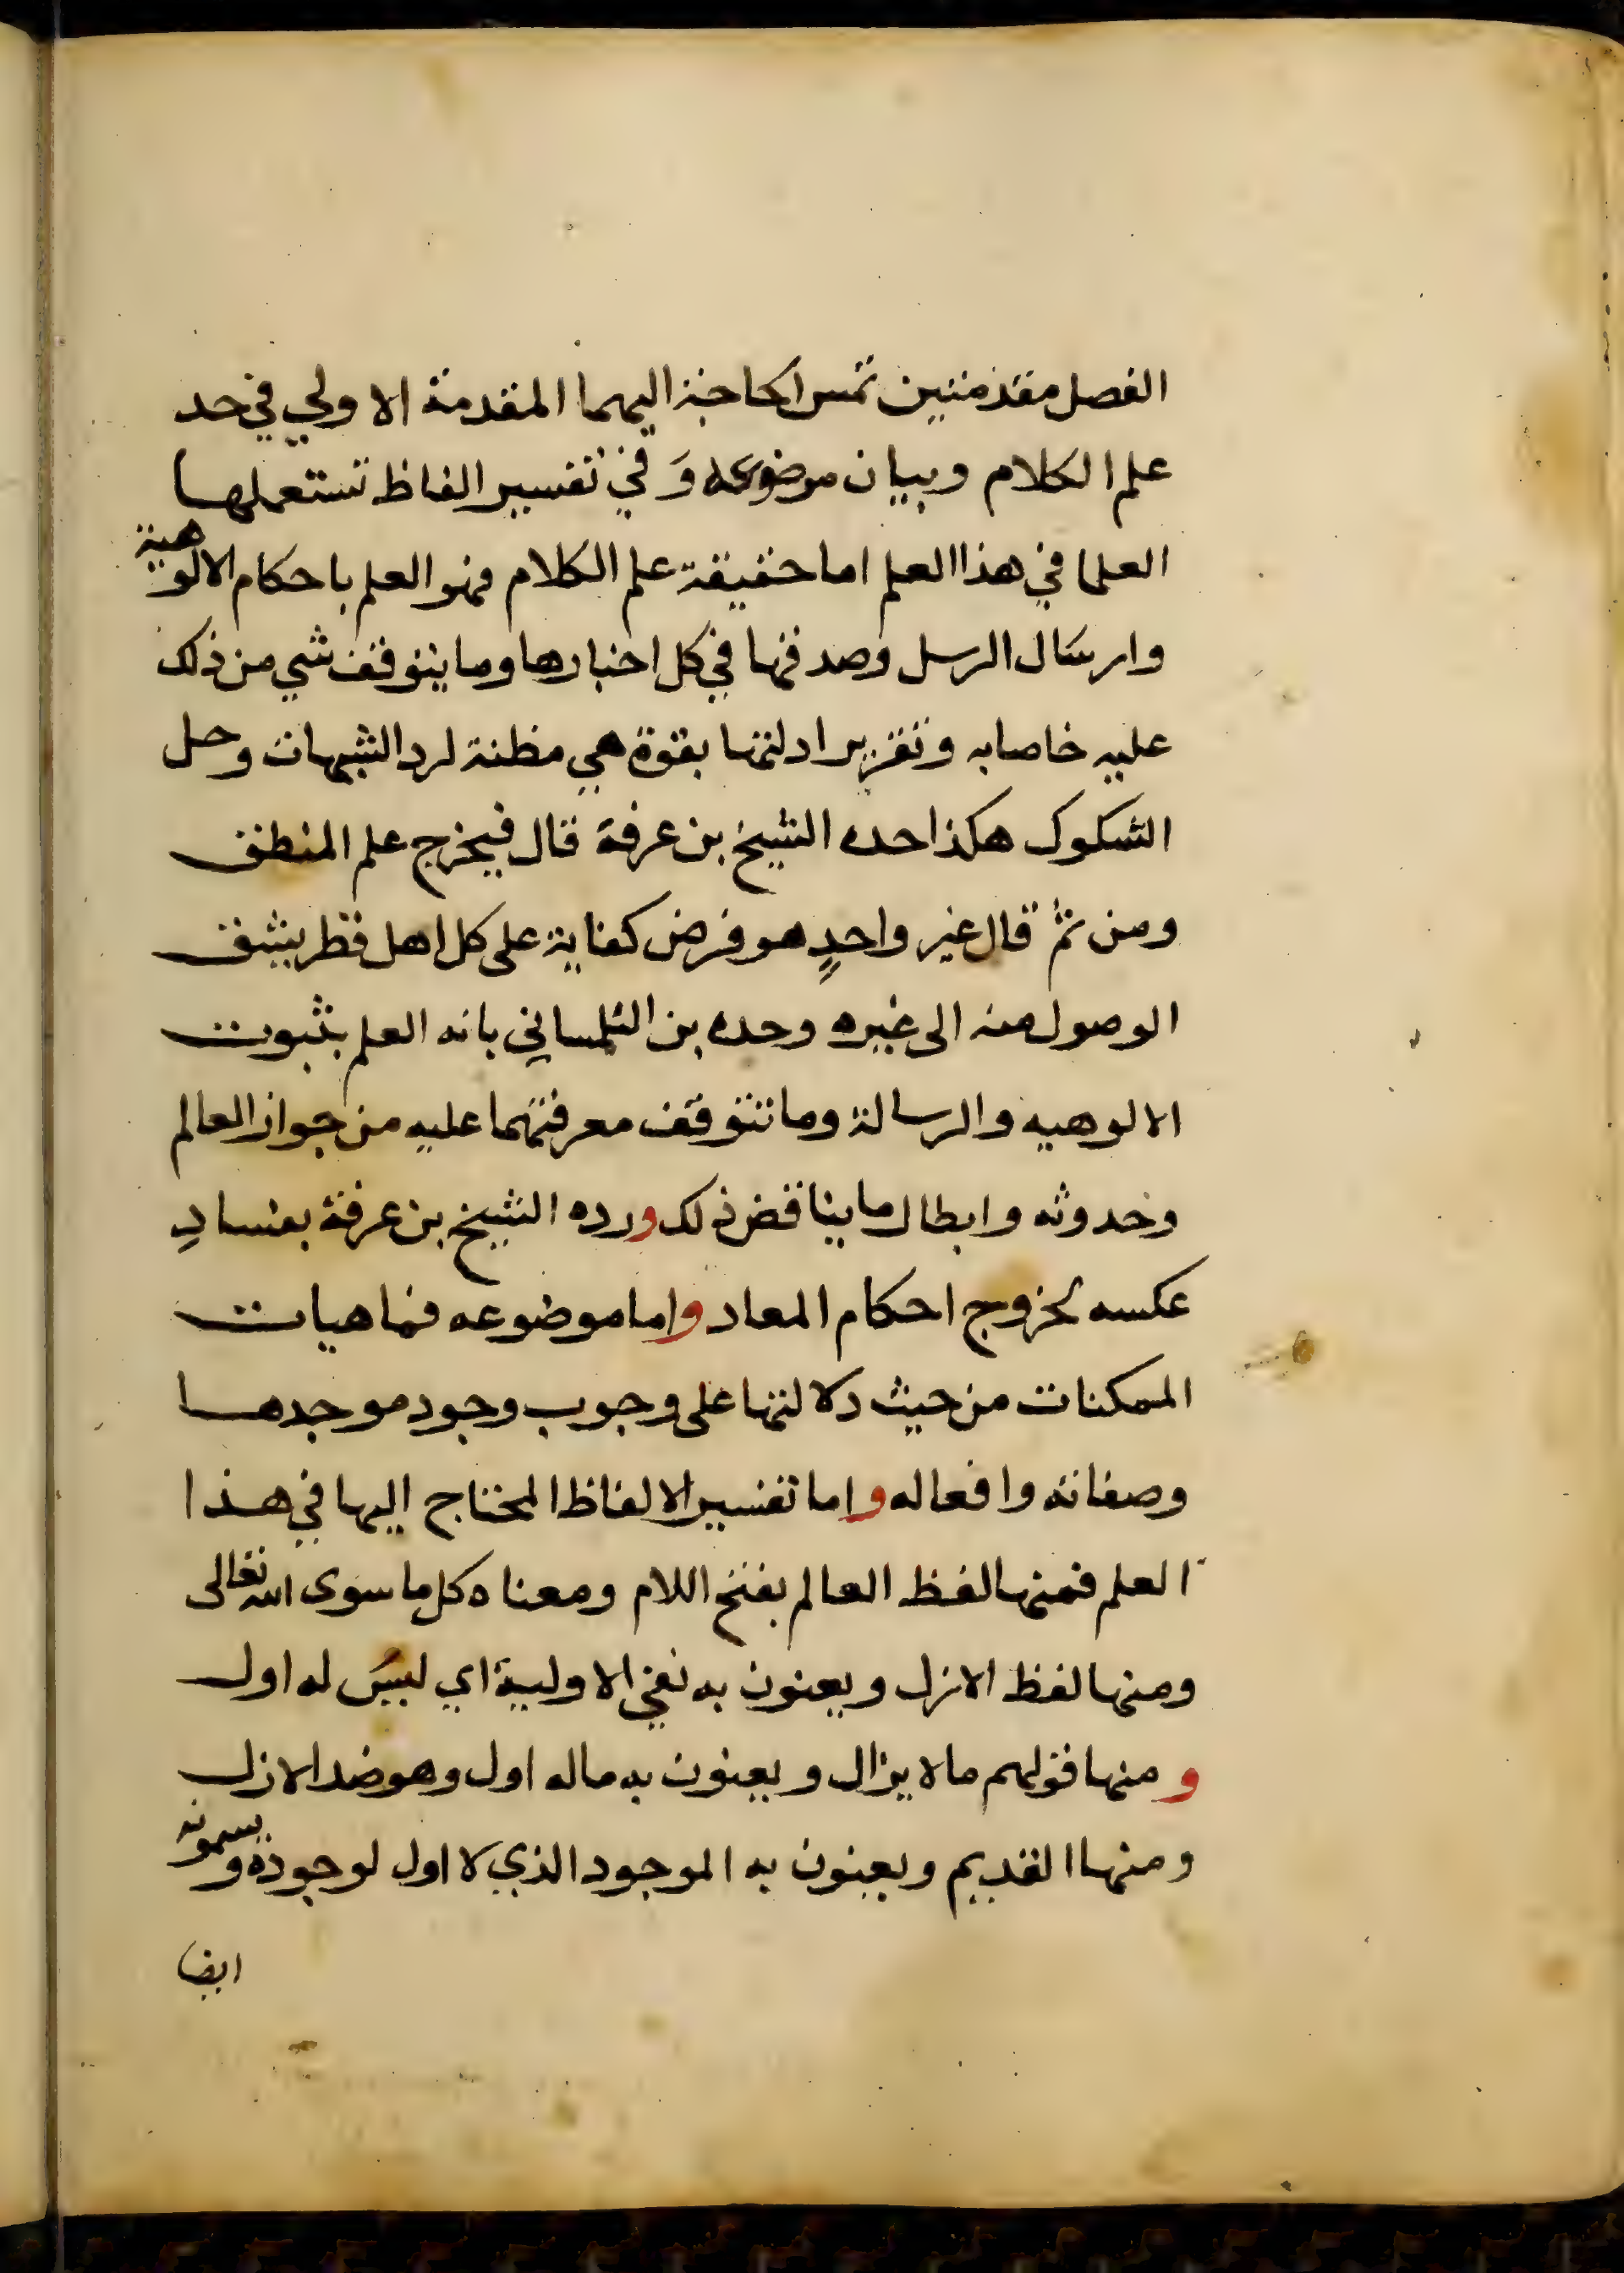 الفصل مقدمتين تمس الحاجة اليهما المقدمة الاولي في حد
علم الكلام وبيان موضوعه وَفي تفسير الفاظ تستعملها
العلما في هذا العلم اما حقيقة علم الكلام فهو العلم باحكام الالوهية
وارسال الرسل وصدقها في كل اخبارها وما يتوقف شي من ذلك
عليه خاصا به وتقرير ادلتها بقوة هي مظنة لرد الشبهات وحل
الشكوك هكذا حده الشيخ بن عرفة قال فيخرج علم المنطق
ومن ثم قال غير واحدٍ هو فرض كفاية على كل اهل قطر يشق
الوصول منه الى غيره وحده بن التلمساني بانه العلم بثبوت
الالوهيه والرسالة وما تتوقف معرفتهما عليه من جواز العالم
وحدوثه وابطال ما يناقض ذلك ورده الشيخ بن عرفة بفسادِ
عكسه لخروج احكام المعاد واما موضوعه فماهيات
الممكنات من حيث دلالتها على وجوب وجود موجدها
وصفاته وافعاله واما تفسير الالفاظ المحتاج اليها في هذا
العلم فمنها لفظ العالم بفتح اللام ومعناه كل ما سوى الله تعالى
ومنها لفظ الازل ويعنون به نفي الاولية اي ليسَ له اول
ومنها قولهم ما لا يزال ويعنون به ماله اول وهو ضد الازل
ومنها القديم ويعنون به الموجود الذي لا اول لوجوده ويسمونه
ايضا